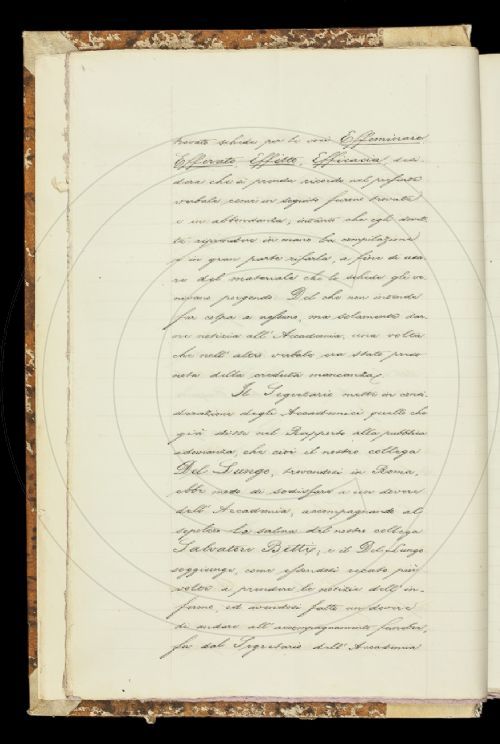 trovate schede per le voci Effeminare
Efferato Effetto Efficacia desi-
dera che si prenda ricordo nel presente
verbale come in seguito furono trovate
e in abbondanza; intanto che egli dovet-
te riprendere in mano la compilazione
e in gran parte rifarla, a fine di usa-
re del materiale che le schede gli ve-
nivano porgendo. Del che non intende
far colpa a nessuno, ma solamente dar-
ne notizia all' Accademia, una volta
che nell' altro verbale era stato preso
nota della creduta mancanza.
Il Segretario mette in consi-
derazione degli Accademici quello che
già disse nel Rapporto alla pubblica
adunanza, che cioè il nostro collega
Del Lungo, trovandosi in Roma,
ebbe modo di sodisfare a un dovere
dell' Accademia, accompagnando al
sepolcro la salma del nostro collega
Salvatore Betti; e il Del Lungo
soggiunge, come essendosi recato più
volte a prendere le notizie dell' in-
fermo, ed avendosi fatto un dovere
di andare all' accompagnamento funebre,
fu dal Segretario dell' Accademia